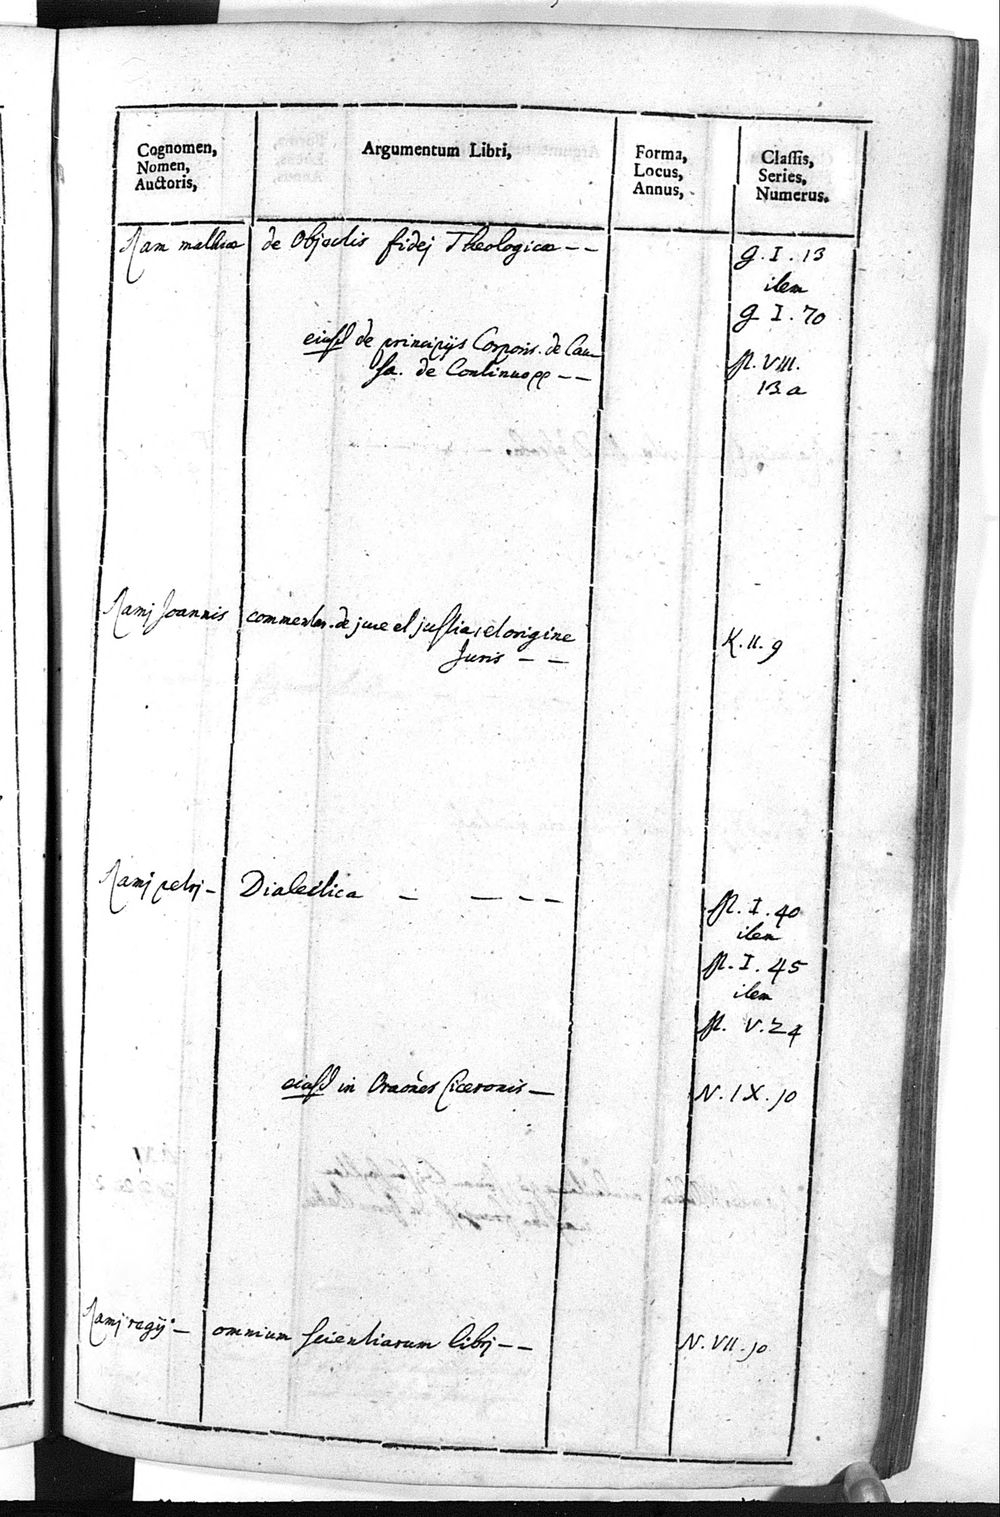 Cognomen,
Nomen,
Auctoris,
Argumentum Libri,
Forma,
Locus,
Annus,
Classis,
Series,
Numerus.
Ram mathiæ de Objectis fidej Theologicæ -- g. I. 13
item
g I. 70
eiusd de principijs Corporis. de Cau
sa. de Continuo -- VIII.
13. a
Ramj Joannis commentar. de jure et justia, et origine
Juris -- K. II. 9
Ramj petrj - Dialectica - - -- I. 40
item
I. 45
item
V. 24
eiusd in Oraões Ciceronis - N. IX. 10
Ramj regij - omnium scientiarum librj -- N. VII. 10